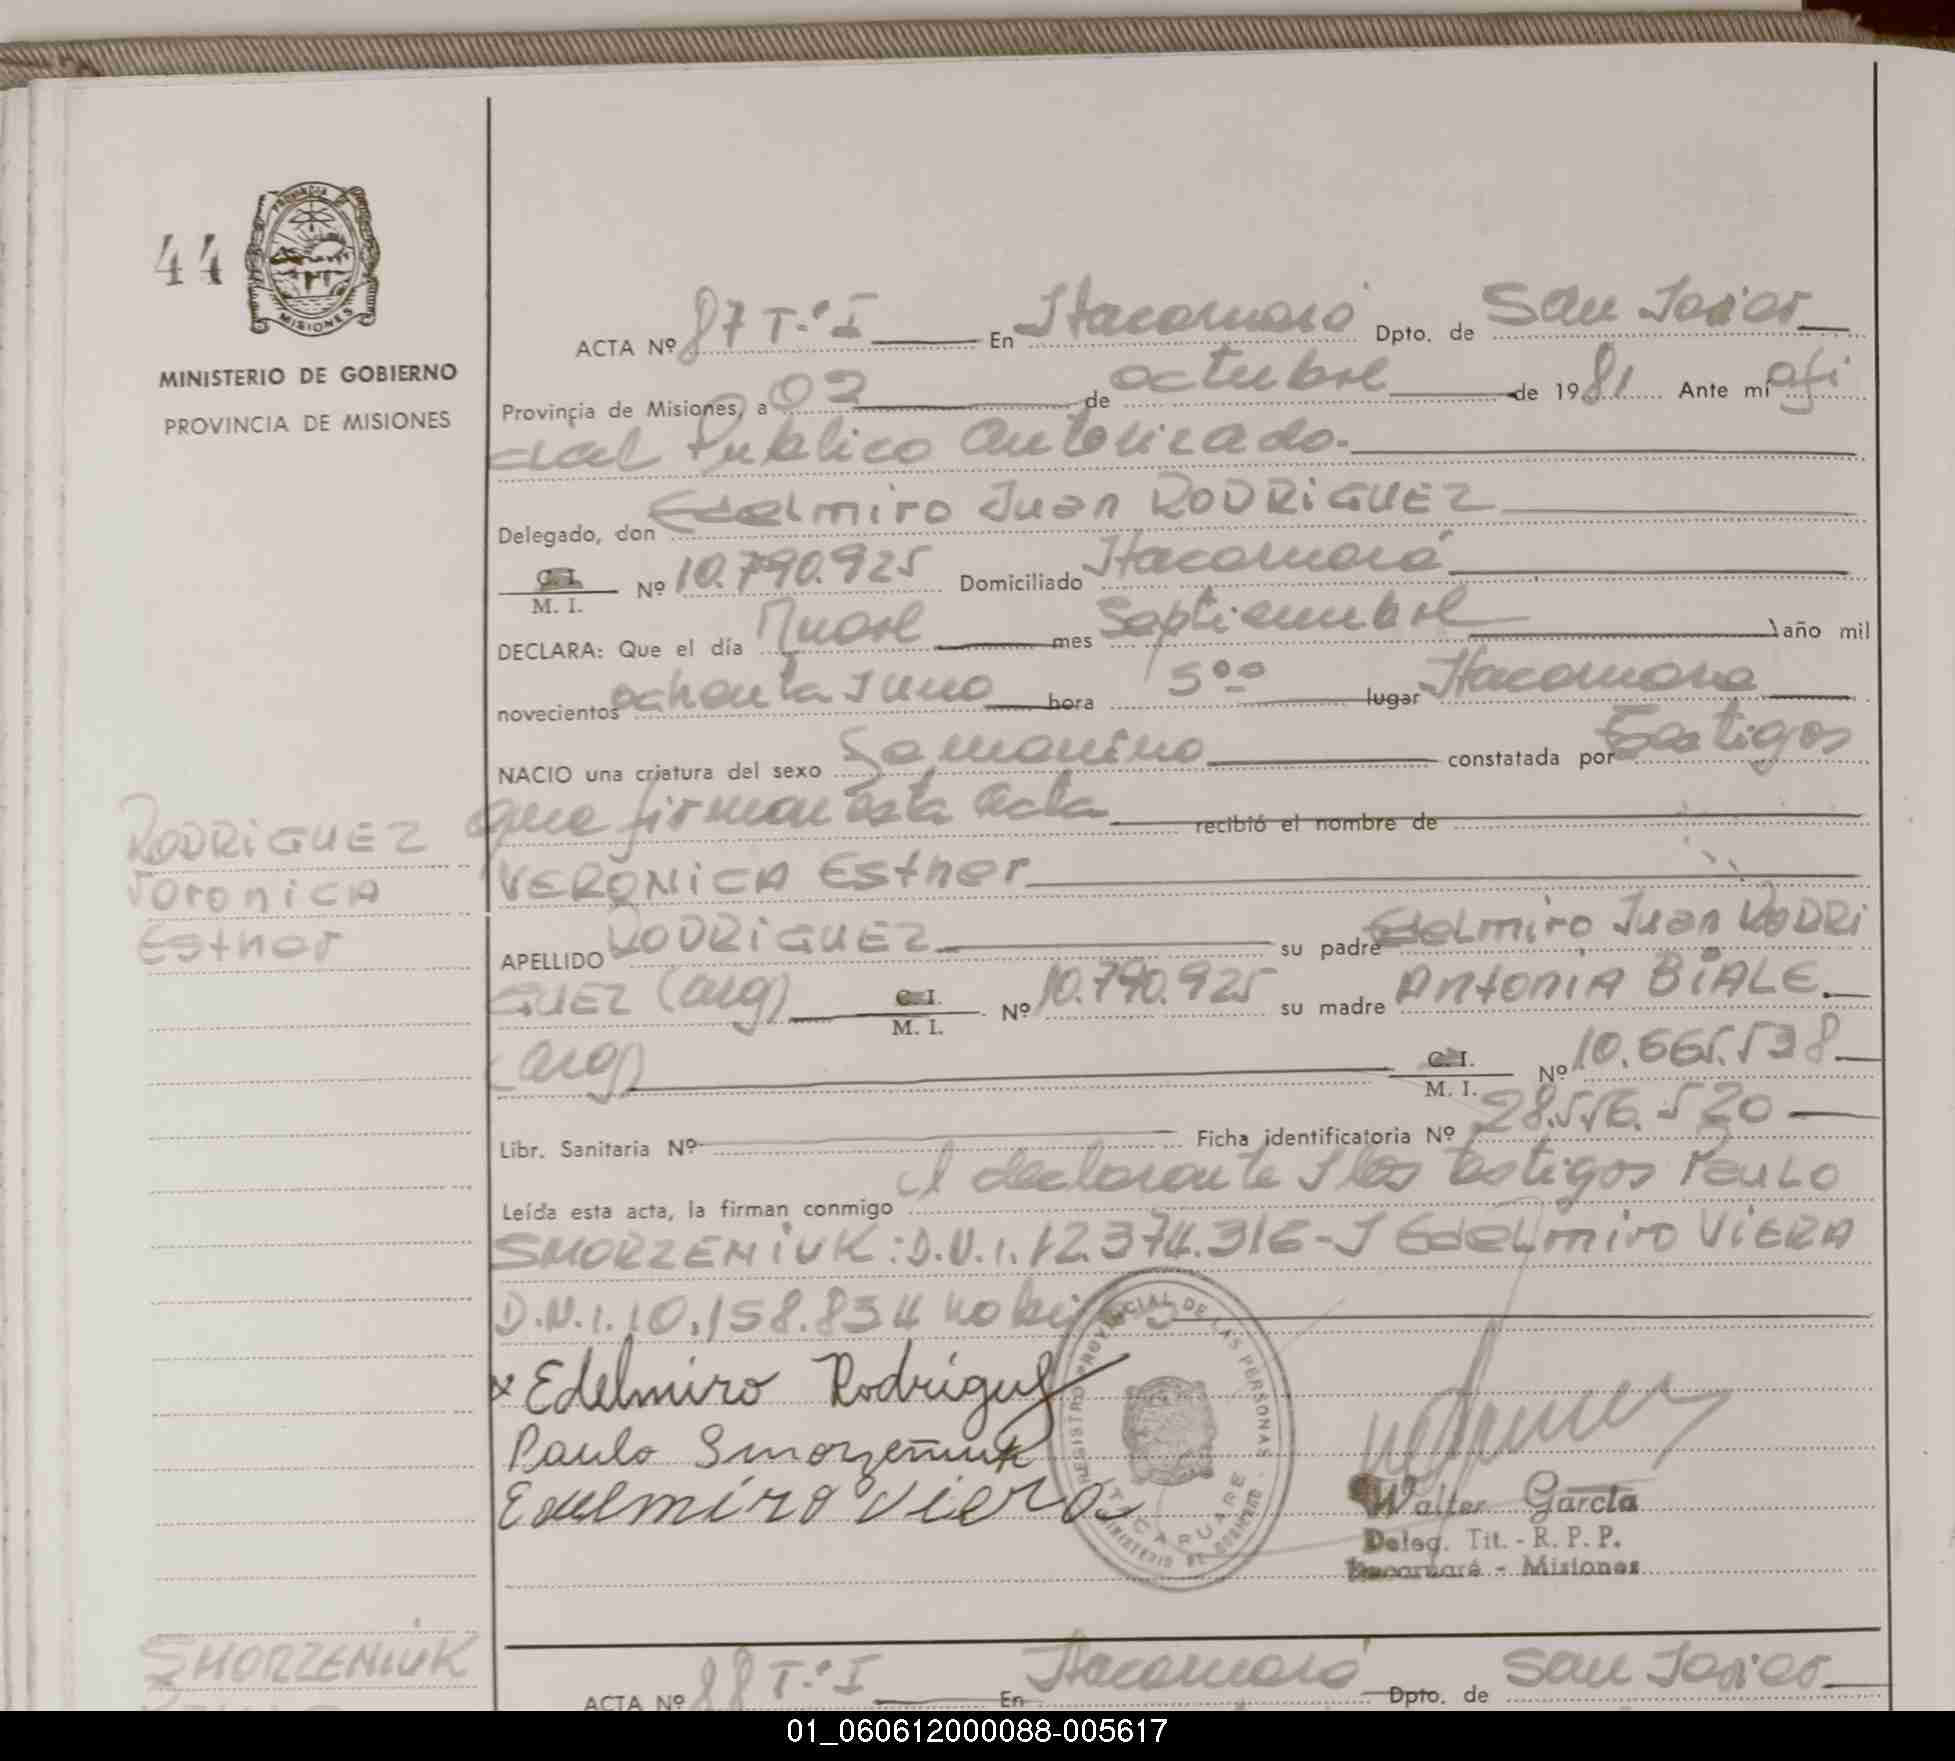 44
PROVINCIA DE
MISIONES
MINISTERIO DE GOBIERNO
PROVINCIA DE MISIONES
ACTA Nº 87 T.º I En Itacaruaré Dpto. de San Javier
Provincia de Misiones, a 02 de octubre de 1981 Ante mi ofi
cial Publico Autorizado.
Delegado, don Edelmiro Juan RODRIGUEZ
C. I.
M. I. Nº 10.790.925 Domiciliado Itacaruaré
DECLARA: Que el día Nueve mes Septiembre año mil
novecientos ochenta y uno hora 5ºº lugar Itacaruaré
NACIO una criatura del sexo Femenino constatada por testigos
que firman esta acta recibió el nombre de
VERONICA Esther
RODRIGUEZ
Veronica
Esther
APELLIDO RODRIGUEZ su padre Edelmiro Juan RODRI
GUEZ (arg) C. I. M. I. Nº 10.790.925 su madre Antonia BIALE.
(arg) C. I. M. I. Nº 10.665.538
Libr. Sanitaria Nº Ficha identificatoria Nº 28.556.520
Leída esta acta, la firman conmigo el declarante y los testigos Paulo
SMORZENIUK: D.N.I. 12.374.316- y Edelmiro VIERA
D.N.I. 10.158.834
Edelmiro Rodriguez
Paulo Smorzeñiuk
Edelmiro Viera
REGISTRO PROVINCIAL DE LAS PERSONAS
ITACARUARE
MINISTERIO DE GOBIERNO
Walter García
Deleg. Tit. - R. P. P.
Itacaruaré - Misiones
SMORZENIUK
ACTA Nº 88 T.º I En Itacaruaré Dpto. de San Javier
01_060612000088-005617